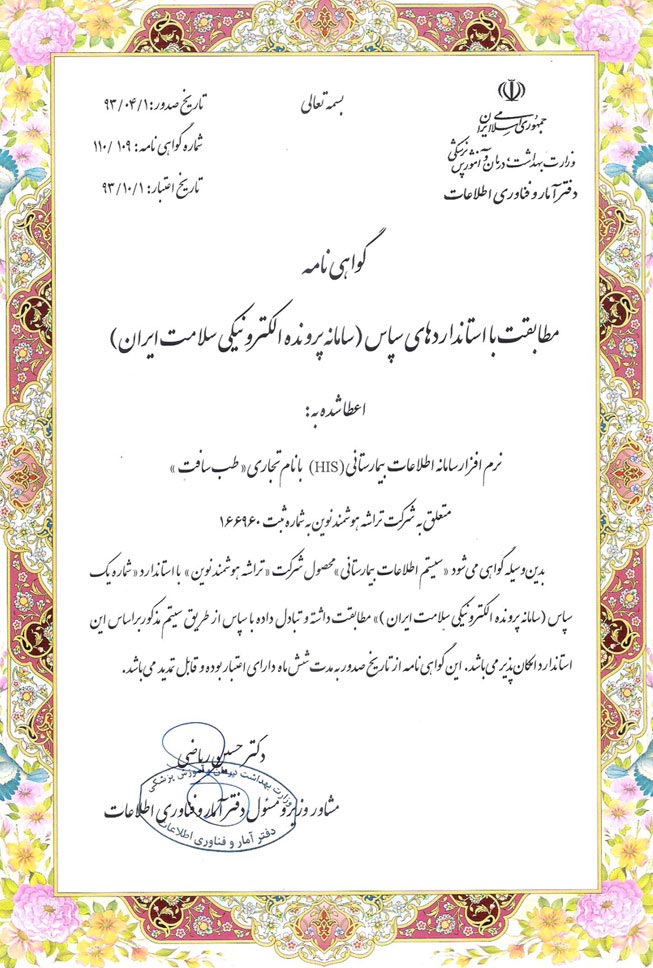 بسمه تعالی
جمهوری اسلامی ایران
وزارت بهداشت، درمان و آموزش پزشکی
دفتر آمار و فناوری اطلاعات
تاریخ صدور: ۹۳/۰۴/۱
شماره گواهی نامه: ۱۱۰/۱۰۹
تاریخ اعتبار: ۹۳/۱۰/۱
گواهی نامه
مطابقت با استانداردهای سپاس (سامانه پرونده الکترونیکی سلامت ایران)
اعطا شده به:
نرم افزار سامانه اطلاعات بیمارستانی (HIS) با نام تجاری « طب سافت »
متعلق به شرکت تراشه هوشمند نوین به شماره ثبت ۱۶۶۹۶۰
بدین وسیله گواهی می‌شود «سیستم اطلاعات بیمارستانی» محصول شرکت «تراشه هوشمند نوین» با استاندارد «شماره یک
سپاس (سامانه پرونده الکترونیکی سلامت ایران )» مطابقت داشته و تبادل داده با سپاس از طریق سیستم مذکور براساس این
استاندارد امکان پذیر می‌باشد. این گواهی نامه از تاریخ صدور به مدت شش ماه دارای اعتبار بوده و قابل تمدید می‌باشد.
دکتر حسین ریاضی
مشاور وزیر و مسئول دفتر آمار و فناوری اطلاعات
وزارت بهداشت درمان و آموزش پزشکی
دفتر آمار و فناوری اطلاعات